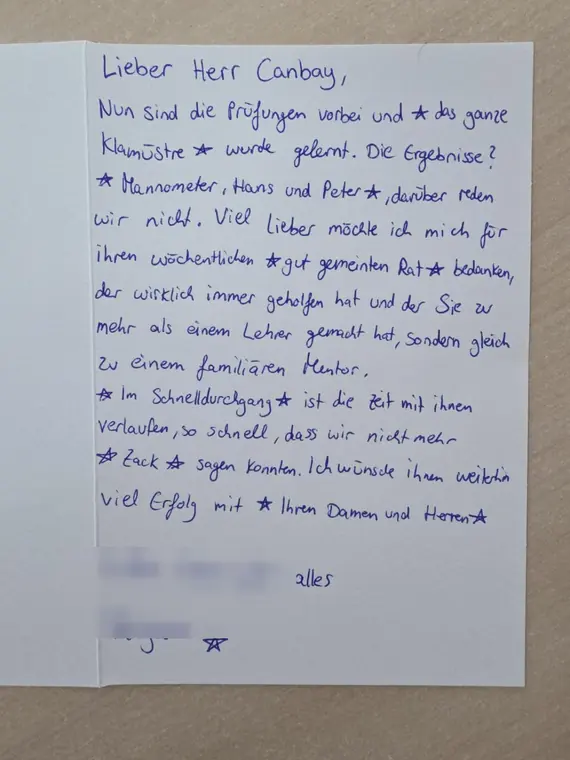 Lieber Herr Canbay,
Nun sind die Prüfungen vorbei und ☆ das ganze
Klamüstre ☆ wurde gelernt. Die Ergebnisse?
☆ Mannometer, Hans und Peter ☆, darüber reden
wir nicht. Viel lieber möchte ich mich für
ihren wöchentlichen ☆ gut gemeinten Rat ☆ bedanken,
der wirklich immer geholfen hat und der Sie zu
mehr als einem Lehrer gemacht hat, sondern gleich
zu einem familiären Mentor.
☆ Im Schnelldurchgang ☆ ist die Zeit mit ihnen
verlaufen, so schnell, dass wir nicht mehr
☆ Zack ☆ sagen konnten. Ich wünsche ihnen weiterhin
viel Erfolg mit ☆ Ihren Damen und Herren ☆
alles
☆